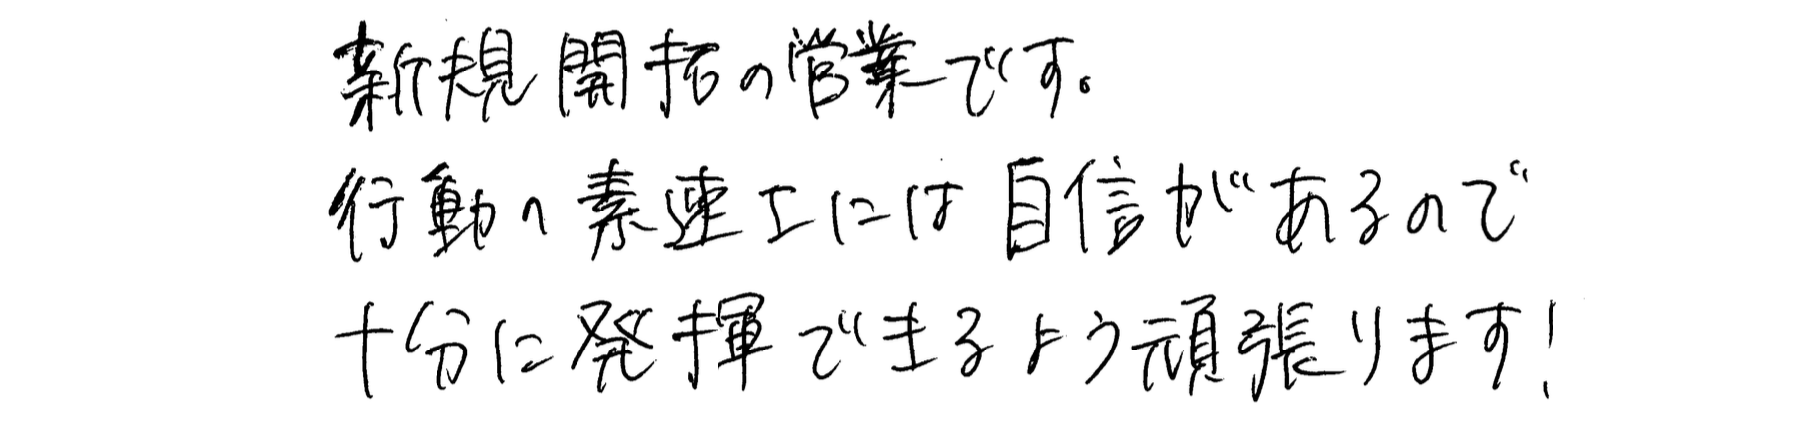 新規開拓の営業です。
行動の素速さには自信があるので
十分に発揮できるよう頑張ります!